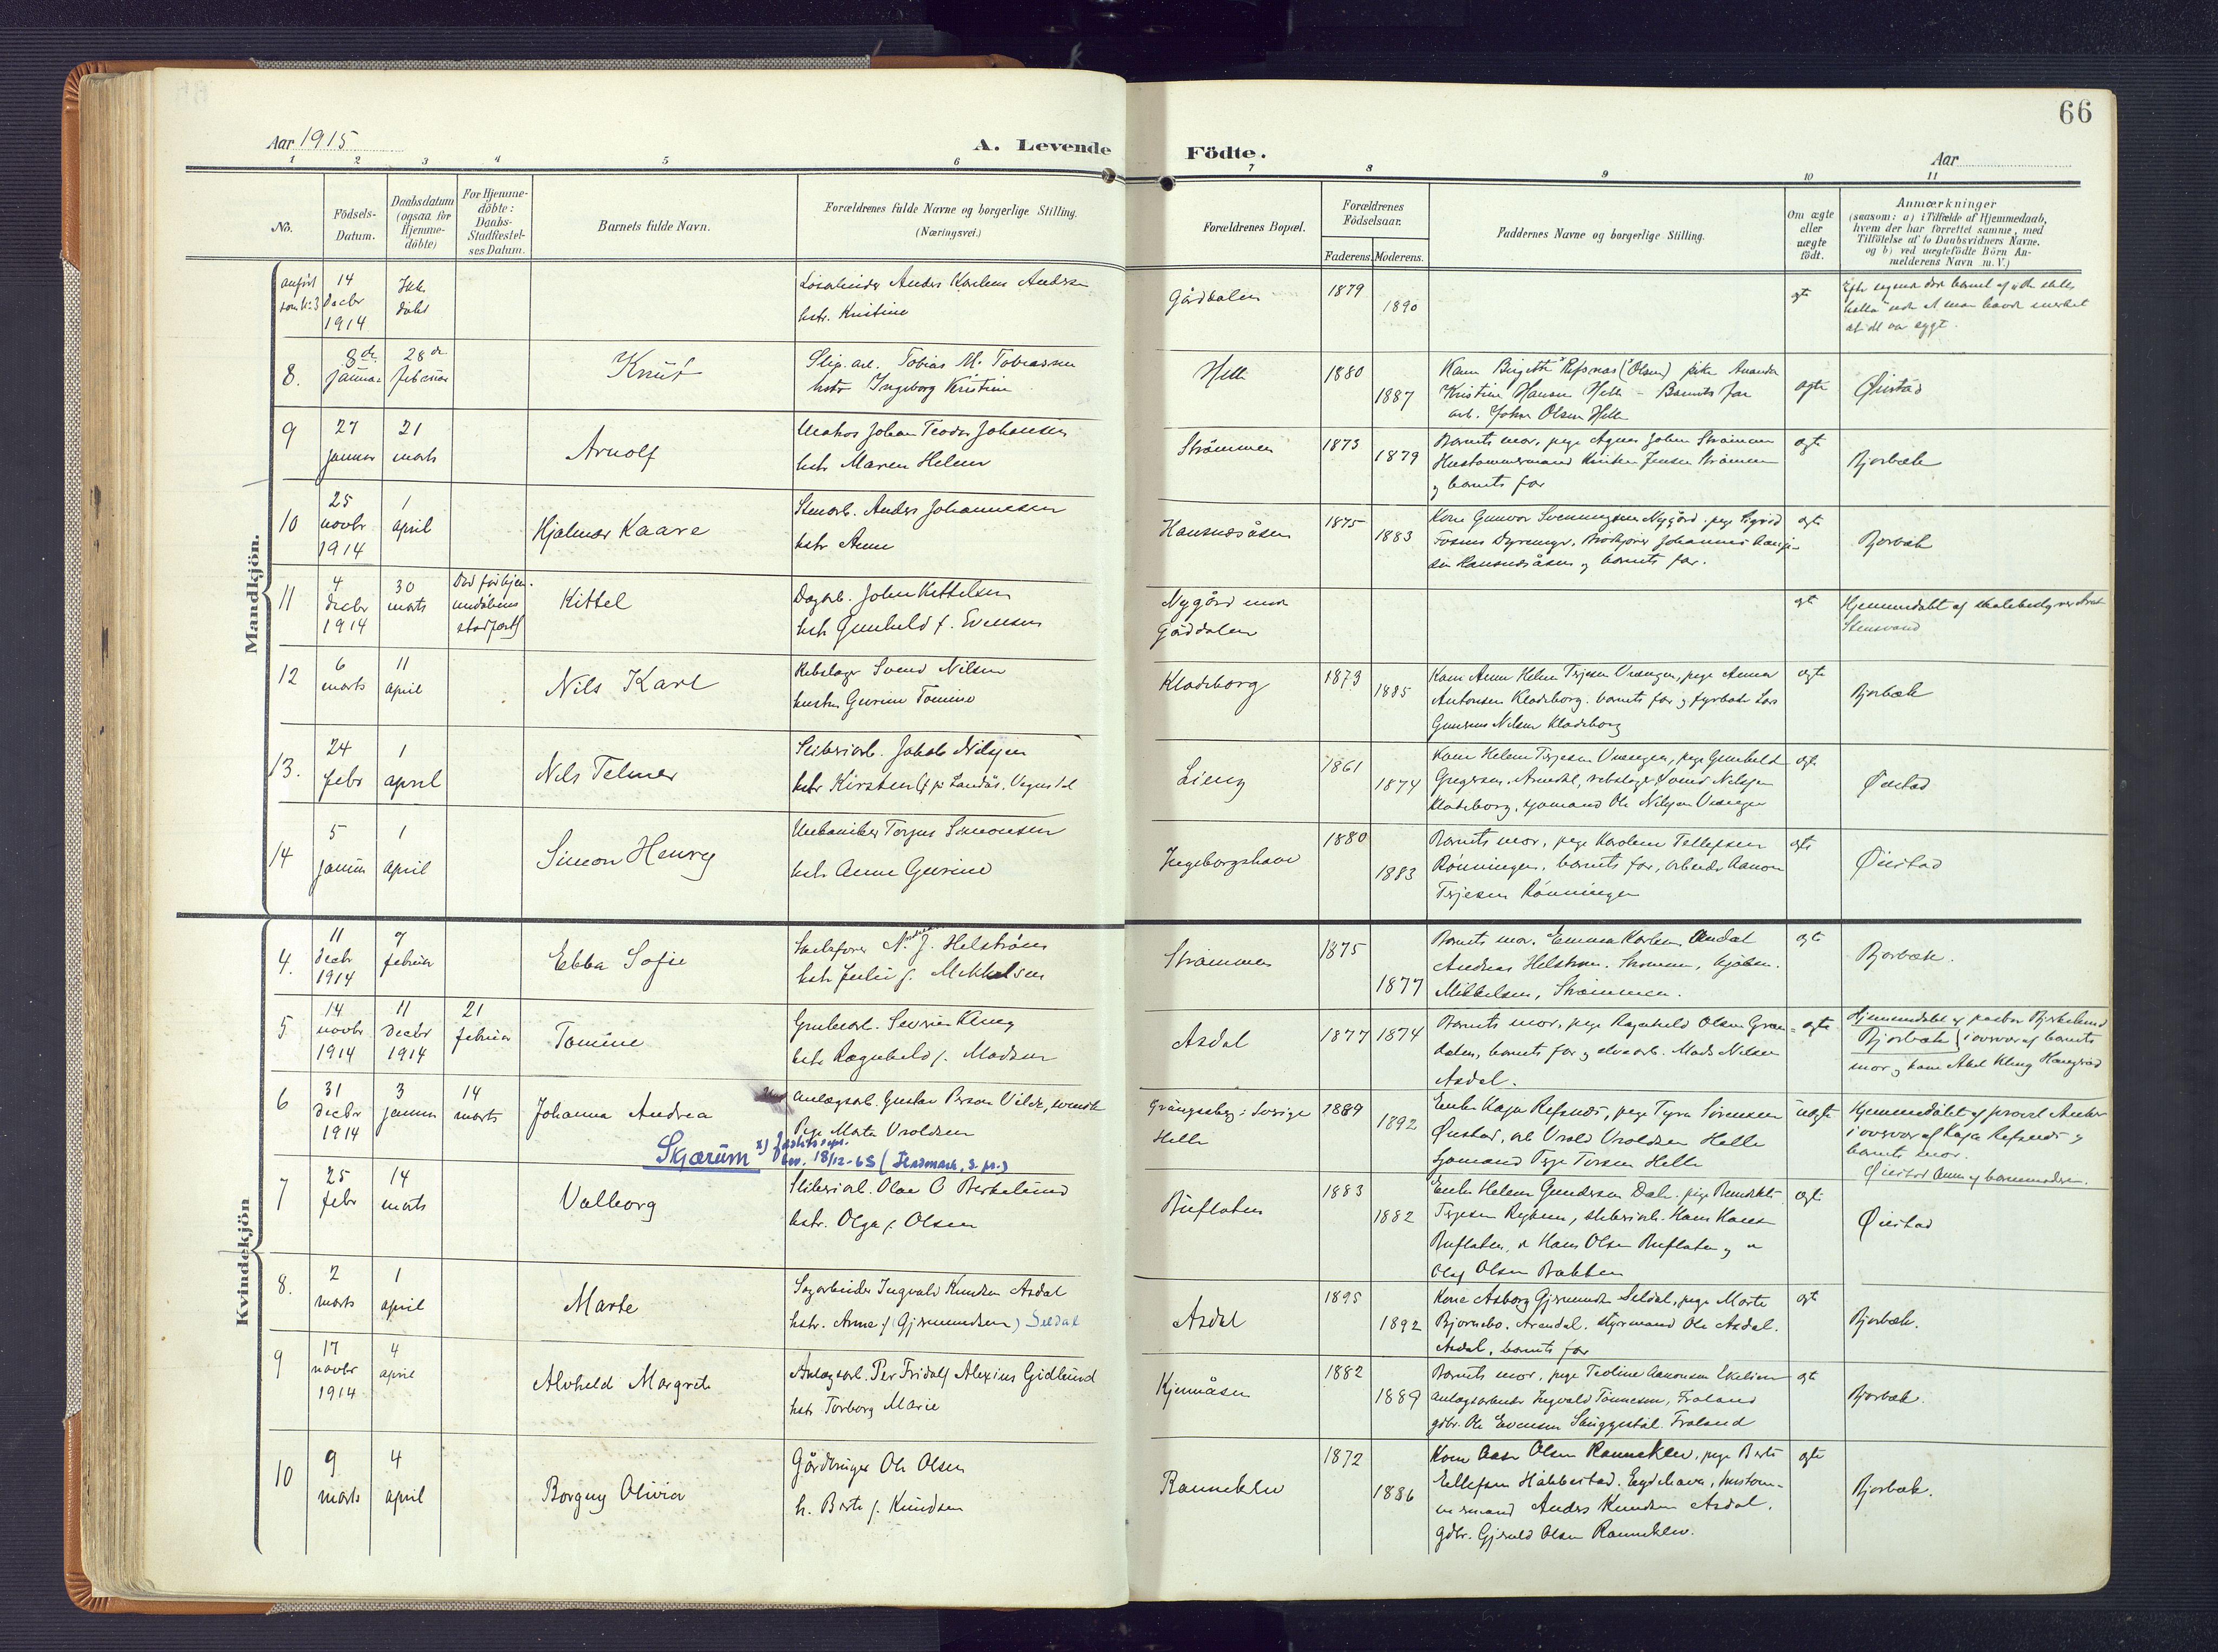 66
Aar 1915
A. Levende
Födte.
Aar
1 2 3 4 5 6 7 8 9 10 11
No.
Födsels-
Datum.
Daabsdatum
(ogsaa for
Hjemme-
döbte)
For Hjemme-
döbte:
Daabs-
Stadfæstel-
ses Datum.
Barnets fulde Navn.
Forældrenes fulde Navne og borgerlige Stilling.
(Næringsvei.)
Forældrenes Bopæl.
Forældrenes
Födselsaar.
Faderens. Moderens.
Faddernes Navne og borgerlige Stilling.
Om ægte
eller
uægte
födt.
Anmærkninger
(saasom: a) i Tilfælde af Hjemmedaab,
hvem der har forrettet samme, med
Tilföielse af to Daabsvidners Navne.
og b) ved uægtefödte Börn An-
melderens Navn m. V.)
Mandkjön.
anført
som No 3
14
Decbr
1914
Ikke
døbt
Anders
hstr. Kristine
Gårdalen
1879
1890
8.
8de
januar
28de
februar
Knut
Slip. arb. Tobias M. Tobiassen
hstr Ingeborg Kristine
Helle
1880
1887
Kone Birgitte Refsnæs (Olsen) pike Amanda
Kristine Hansen Helle - Barnets far
arb. John Olsen Helle
ægte
Øiestad
9
27
januar
21
marts
Arnolf
Matros Johan Teodor Johansen
hstr Maren Helene
Strømmen
1873
1879
Barnets mor, pige Agnes
Strømmen
og barnets far
ægte
Bjorbæk
10
25
novbr
1914
1
april
Hjalmar Kaare
Stenarb. Anders Johannessen
hstr Anne
Hansnesåsen
1875
1883
Kone Gunvor Svenningsen Nygård. pige Sigrid
Johannes
Hansnesåsen og barnets far.
ægte
Bjorbæk
11
4
decbr
1914
30
marts
Død før hjem-
medåbens
stadfæst
Kittel
Dagarb. John Kittelsen
hstr Gunhild f. Evensen
Nygård
Gårdalen
ægte
Hjemmedøbt af skolebestyrer
Stensvand
12
6
marts
11
april
Nils Karl
Rebslager Svend Nilsen
hustru Gurine Tomine
Kladeborg
1873
1885
Kone Anne Helene Terjesen Vrængen, pige Anna
Antonsen Kladeborg. barnets far og fyrbøter Lars
Nilsen Kladeborg
ægte
Bjorbæk
13.
24
febr
1
april
Nils Telmer
Sliberiarb. Jakob Nilsen
hstr Kirsten
Lieng
1861
1874
Kone Helene Terjesen Vrængen, pige Gunhild
Gregersen. Arendal, rebslager Svend Nilsen
Kladeborg, sømand Ole Nilsen Vrængen
ægte
Øiestad
14
5
januar
1
April
Simon Henry
Mekaniker Torjus Simonsen
hstr Anne Gurine
Ingeborgshave
1880
1883
Barnets mor, pige Karoline Tellefsen
Rønningen, barnets far, arbeider Aanon
Terjesen Rønningen
ægte
Øiestad
Kvindekjön
4.
11
decbr
1914
7
februar
Ebba Sofie
N. J. Helstrøm
hstr Julie f. Mikkelsen
Strømmen
1875
1877
Barnets mor. Emma Karlsen Arendal
Andreas Helstrøm. Strømmen,
Mikkelsen, Strømmen.
ægte
Bjorbæk.
5
14
novbr
1914
11
decbr
1914
21
februar
Tomine
Grubearb. Severin Kling
hstr Ragnhild f. Madsen
Asdal
1877 1874
Barnets mor, pige Ragnhild Olsen
barnets far og elvearb. Mads Nilsen
Asdal.
ægte
Hjemmedøbt af pastor Birkelund
Bjorbæk i overvær af barnets
mor og kone Abel Kling
6
31
decbr
1914
3
januar
14
marts
Johanna Andrea
Anlægsarb. Gustav Person Vilde, svensk
Pige Marta Vroldsen
Skjærüm x) Justits
bev. 18/12-68
Grängesberg i Sverige
Helle
1889
1892
Enke Kaja Refsnæs, pige Tyra Sørensen
Øiestad, arb Vrold Vroldsen Helle
Sømand Terje Terjesen Helle
uægte
Hjemmedøbt af provst
i overvær af Kaja Refsnæs og
barnets mor.
Øiestad Anm. af barnemoderen.
7
25
febr
14
marts
Valborg
Sliberiarb. Olav O Berkelund
hstr. Olga f. Olsen
Buflaten
1883
1882
Enke Helene Gundersen Dal. pige Benedikte
Terjesen Rykene, sliberiarb. Hans Hansen
Buflaten, Hans Olsen Buflaten og
Olaf Olsen Bakken
ægte
Øiestad
8.
2
marts
1
april
Marte
Sagarbeider Ingvald Knudsen Asdal
hstr. Anne f (Gjermundsen) Seldal
Asdal
1895
1892
Kone Asborg Gjermundsen Seldal, pige Marte
Bjørnebo. Arendal. styrmand Ole Asdal.
Asdal, barnets far
ægte
Bjorbæk.
9
17
novbr
1914
4
april
Alvhild Margrete
Anlægsarb. Per Fridolf Alexius Gidlund
hstr Torborg Marie
Kjennåsen
1882
1889
Barnets mor, pige Teoline Aanonsen
anlægsarbeider Ingvald Tønnesen, Froland
gdbr. Ole Evensen Froland
ægte
Bjorbæk.
10
9
marts
4
april
Borgny Olivia
Gårdbruger Ole Olsen
h. Berte f. Knudsen
Ranneklev
1872
1886
Kone Aase Olsen Ranneklev, pige Berte
Eellefsen Håbbestad. Eydehavn, hustøm-
mermand Anders Knudsen Asdal,
gdbr. Gjeruld Olsen Ranneklev.
ægte
Bjorbæk.